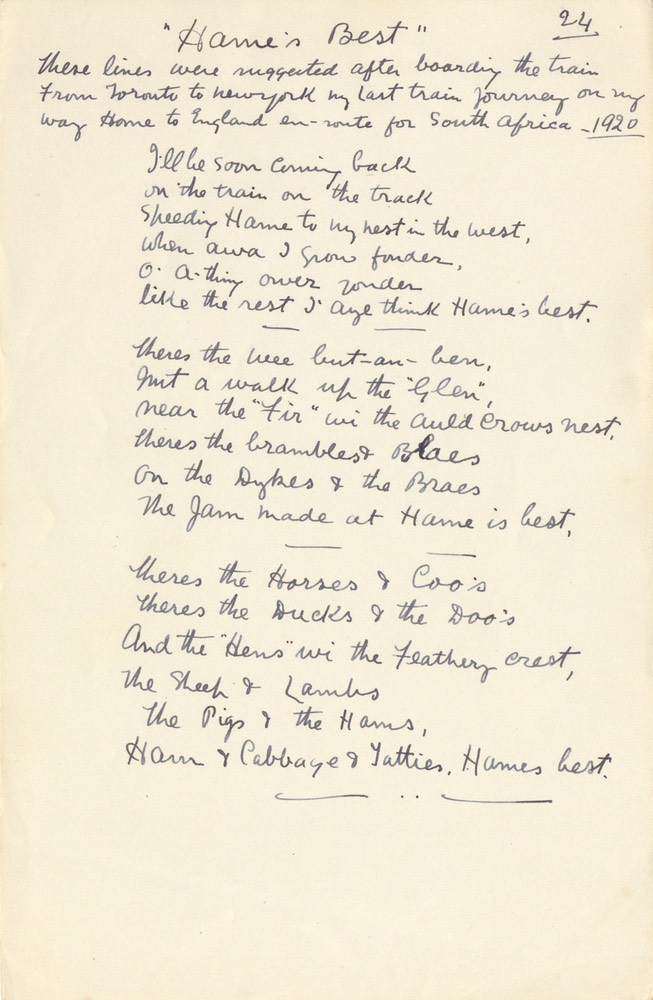 24
"Hame's Best"
These lines were suggested after boarding the train
From Toronto to newyork my last train journey on my
way Home to England en-route for South Africa - 1920
I'll be soon coming back
on the train on the track
Speeding Hame to my nest in the west,
when awa I grow fonder,
O' A-thing ower yonder
like the rest I aye think Hame's best.
Theres the wee but-an-ben,
Just a walk up the "Glen",
near the "Fir" wi the auld Crows nest,
Theres the brambles & Blaes
On the Dykes & the Braes
The Jam made at Hame is best,
Theres the Horses & Coo's
Theres the Ducks & the Doo's
And the "Hens" wi the Feathery crest,
The Sheep & Lambs
The Pigs & the Hams,
Ham & Cabbage & Tatties, Hames best.